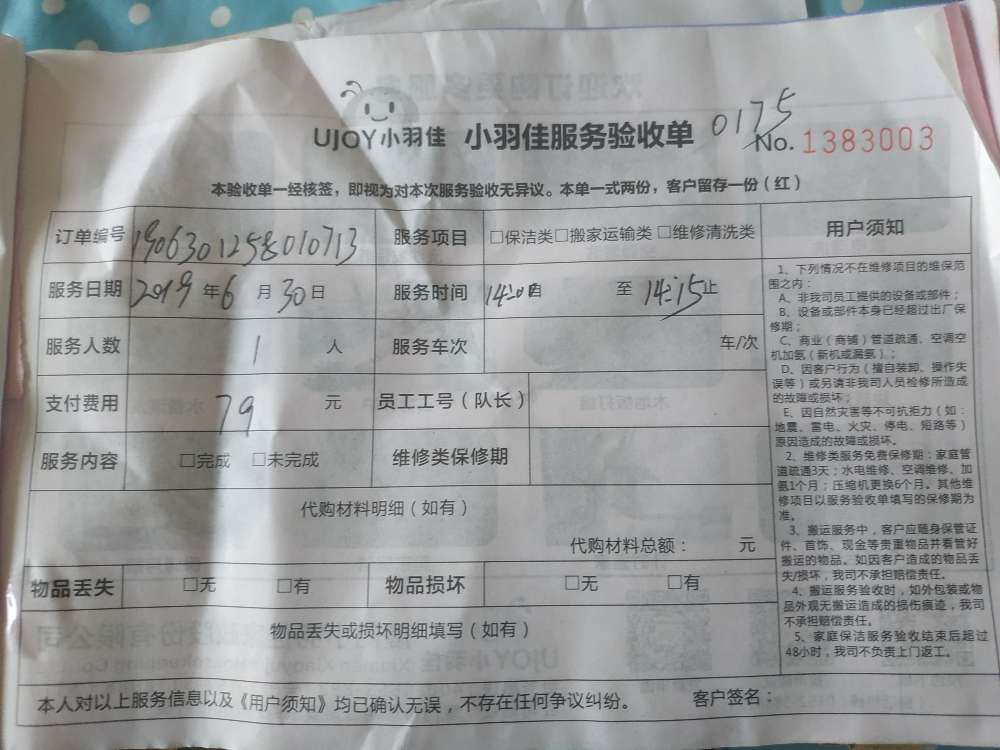 UJOY小羽佳 小羽佳服务验收单 0175
No. 1383003
本验收单一经核签，即视为对本次服务验收无异议。本单一式两份，客户留存一份（红）
订单编号 1906301258010713 服务项目 □保洁类□搬家运输类□维修清洗类
服务日期 2019年6月30日 服务时间 14:20自 至 14:15止
服务人数 1 人 服务车次 车/次
支付费用 79 元 员工工号（队长）
服务内容 □完成 □未完成 维修类保修期
代购材料明细（如有）
代购材料总额： 元
物品丢失 □无 □有 物品损坏 □无 □有
物品丢失或损坏明细填写（如有）
本人对以上服务信息以及《用户须知》均已确认无误，不存在任何争议纠纷。 客户签名：
用户须知
1、下列情况不在维修项目的维保范
围之内：
A、非我司员工提供的设备或部件；
B、设备或部件本身已经超过出厂保
修期；
C、商业（商铺）管道疏通、空调空
机加氨（新机或漏氨）；
D、因客户行为（擅自装卸、操作失
误等）或另请非我司人员检修所造成
的故障或损坏；
E、因自然灾害等不可抗拒力（如：
地震、雷电、火灾、停电、短路等）
原因造成的故障或损坏。
2、维修类服务免费保修期：家庭管
道疏通3天；水电维修、空调维修、加
氨1个月；压缩机更换6个月。其他维
修项目以服务验收单填写的保修期为
准。
3、搬运服务中，客户应随身保管证
件、首饰、现金等贵重物品并看管好
搬运的物品。如因客户造成的物品丢
失/损坏，我司不承担赔偿责任。
4、搬运服务验收时，如外包装或物
品外观无搬运造成的损伤痕迹，我司
不承担赔偿责任。
5、家庭保洁服务验收结束后超过
48小时，我司不负责上门返工。